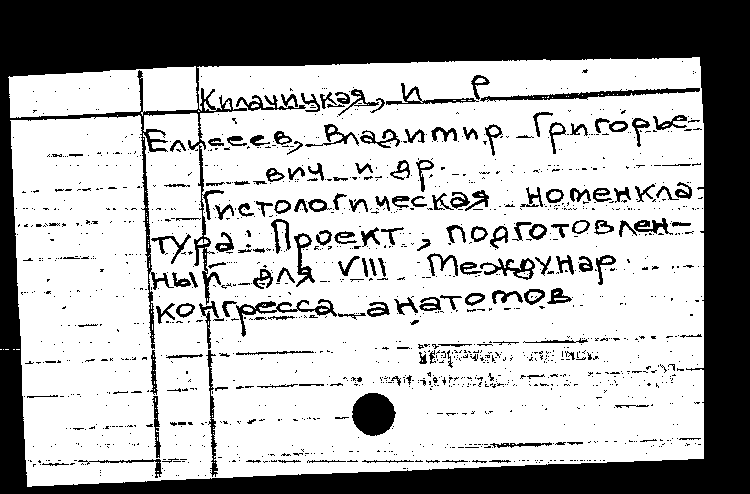 Килачицкая, И Р
Елисеев, Владимир Григорье-
вич и др.
Гистологическая номенкла-
тура: Проект, подготовлен-
ный для VIII Междунар.
конгресса анатомов